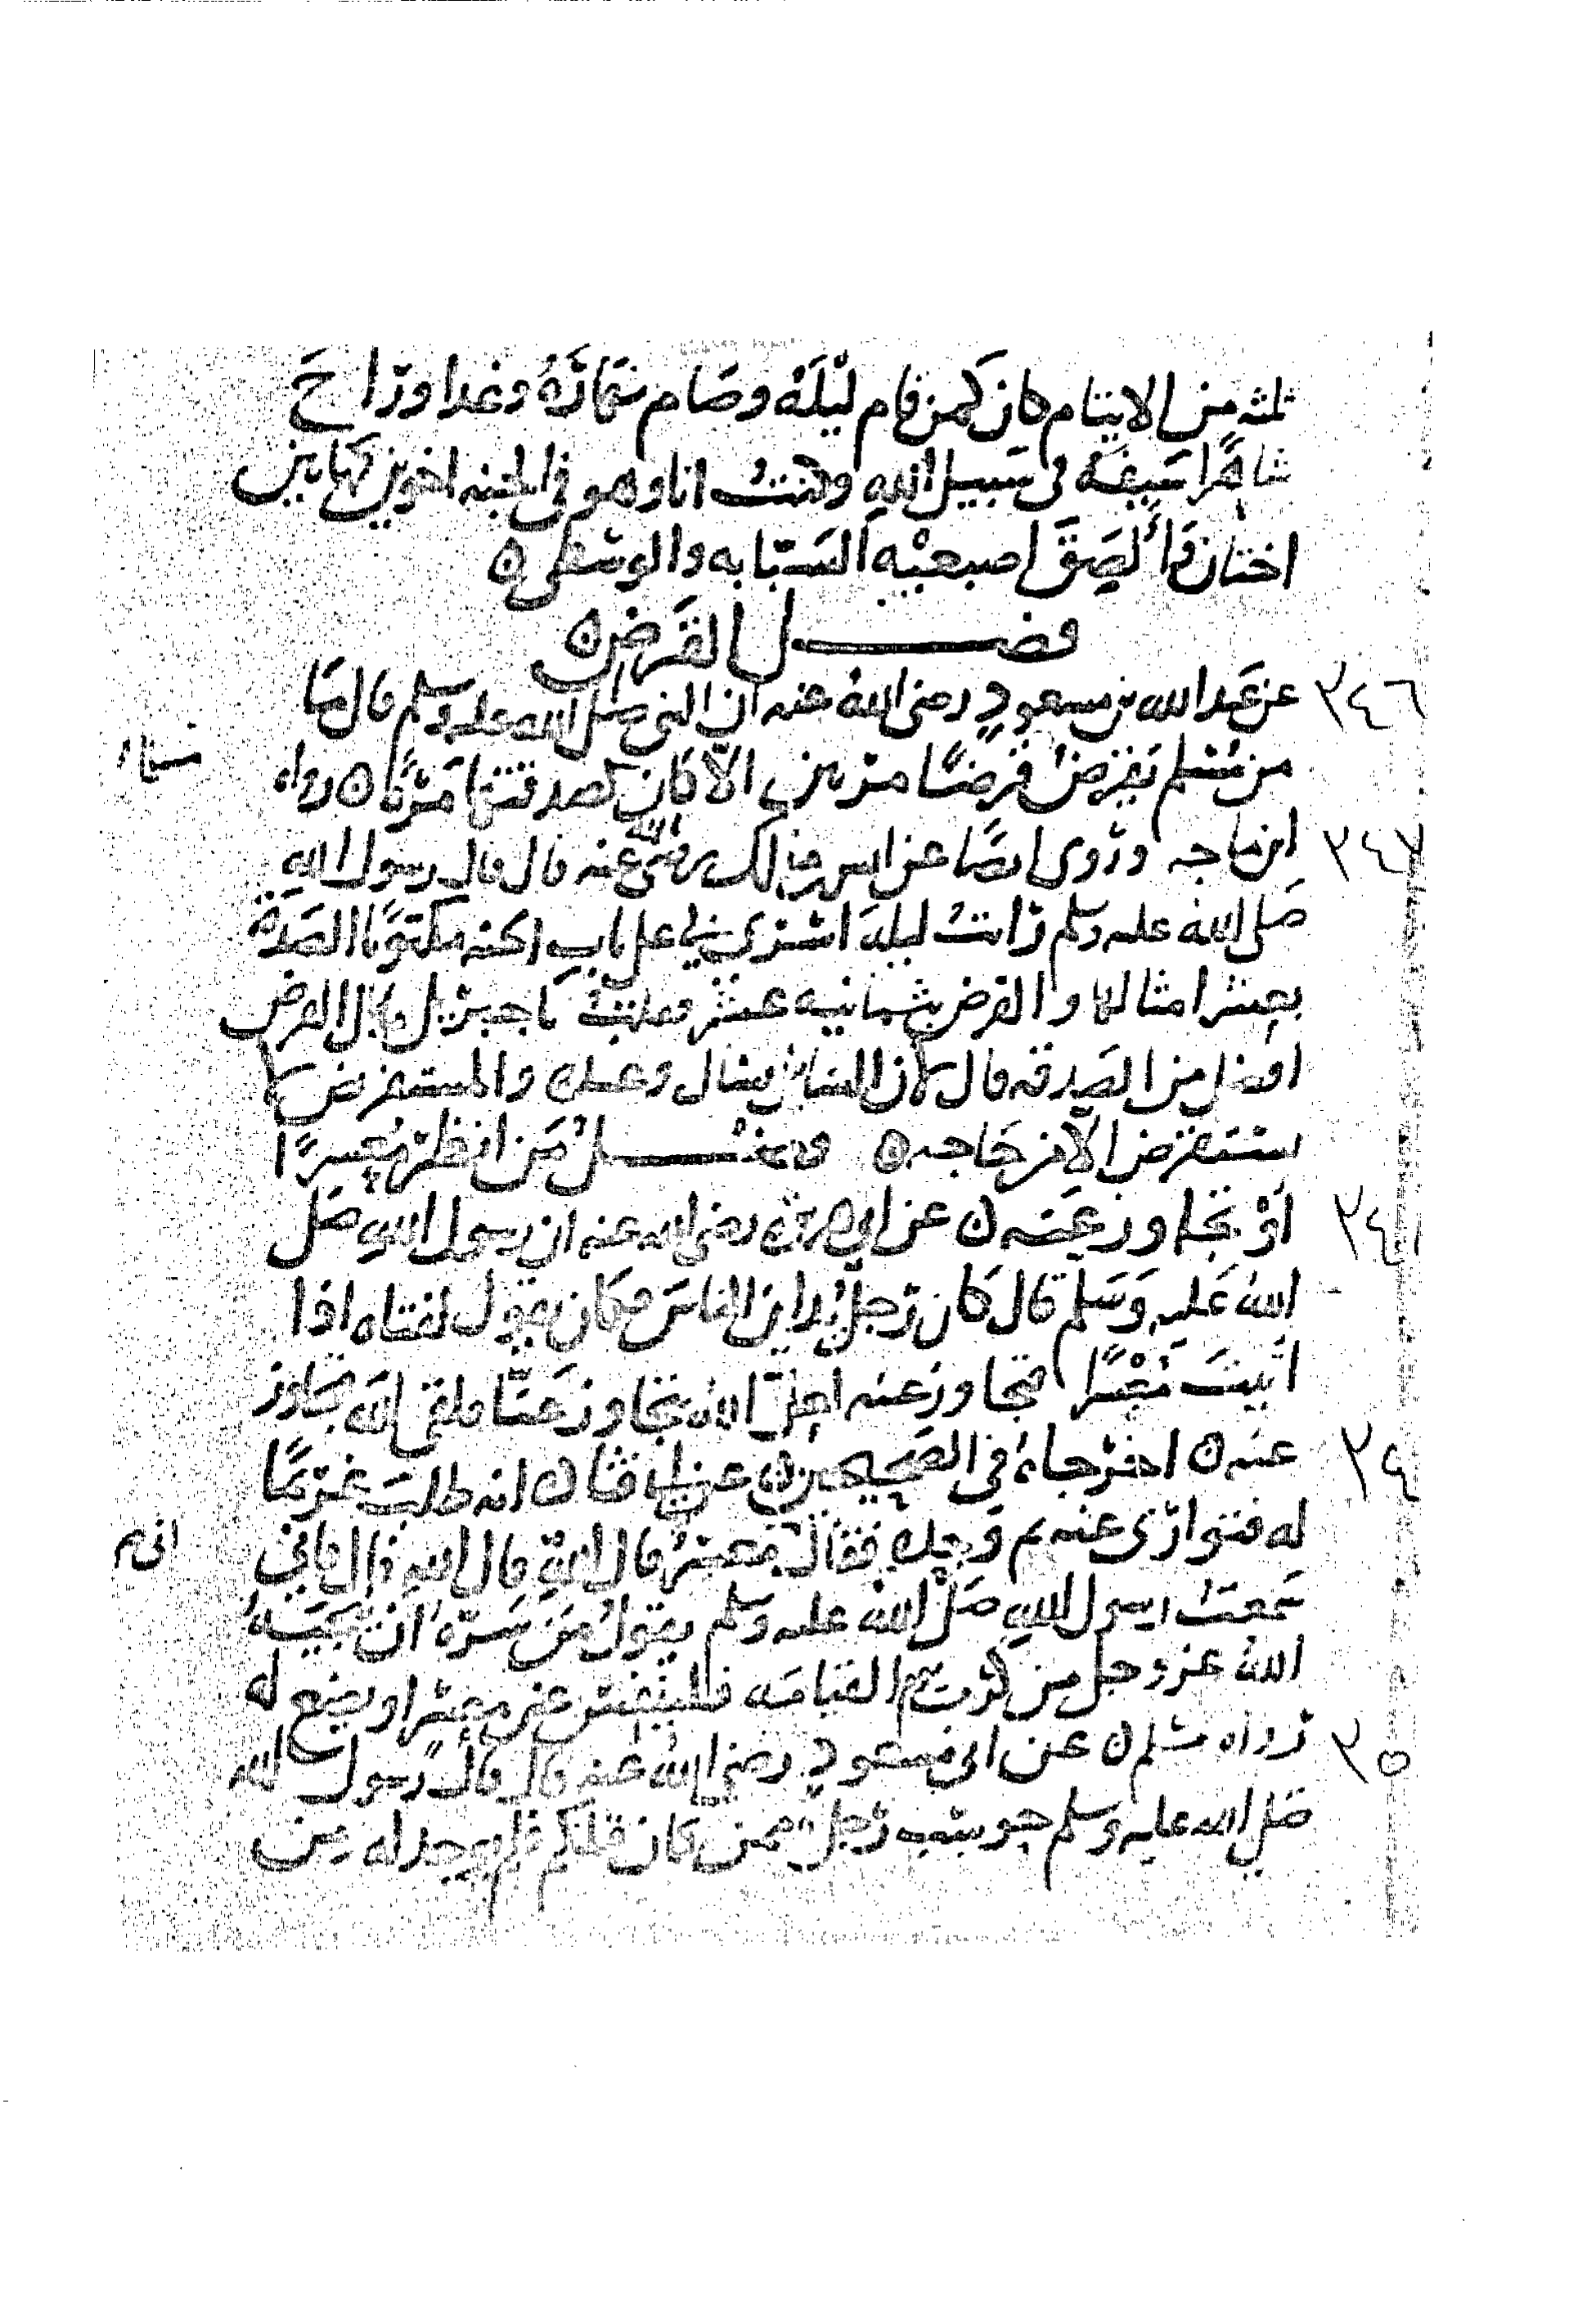 ثلثه من الايتام كان كمن قام ليله وصام نهاره وغدا وراح
شاهرا سيفه في سبيل الله وكنت انا وهو في الجنه اخوين كهاتين
اختان والصق اصبعيه السبابه والوسطى ن
فضل القرض ن
٣٤٦ عن عبد الله بن مسعود رضى الله عنه ان النبى صلى الله عليه وسلم قال ما
من مسلم يقرض قرضا مرتين الا كان كصدقتها مرة ن رواه
٣٤٧ ابن ماجه وروى ايضا عن انس بن مالك رضى الله عنه قال قال رسول الله
صلى الله عليه وسلم رايت ليلة اسرى بي على باب الجنه مكتوبا الصدقة
بعشر امثالها والقرض بثمانيه عشر فقلت يا جبريل ما بال القرض
افضل من الصدقه قال لان السايل يسال وعنده والمستقرض لا
يستقرض الا من حاجه ن فضل من انظر معسرا
او تجاوز عنه ن عن ابي هريرة رضى الله عنه ان رسول الله صلى
الله عليه وسلم قال كان رجل يداين الناس فكان يقول لفتاه اذا
اتيت معسرا فتجاوز عنه لعل الله يتجاوز عنا فلقى الله فتجاوز
عنه ن اخرجاه في الصحيحين ن عن ابي قتادة انه طلب غريما
له فتوارى عنه ثم وجده فقال معسر قال الله قال الله قال فانى
سمعت رسول الله صلى الله عليه وسلم يقول من سره ان ينجيه
الله عز وجل من كرب يوم القيامه فلينفس عن معسر او يضع له
٣٥ رواه مسلم ن عن ابى مسعود رضى الله عنه قال قال رسول الله
صلى الله عليه وسلم حوسب رجل ممن كان قبلكم فلم يوجد له من